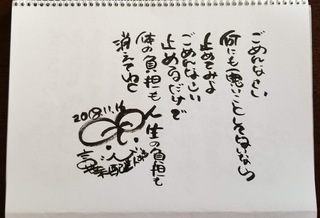 ごめんなさい
何にも悪いことしてないなら
止めてみよ
ごめんなさい
止めるだけで
人生の負担も
体の負担も
消えてゆく
2018.11.16
言葉の配達人